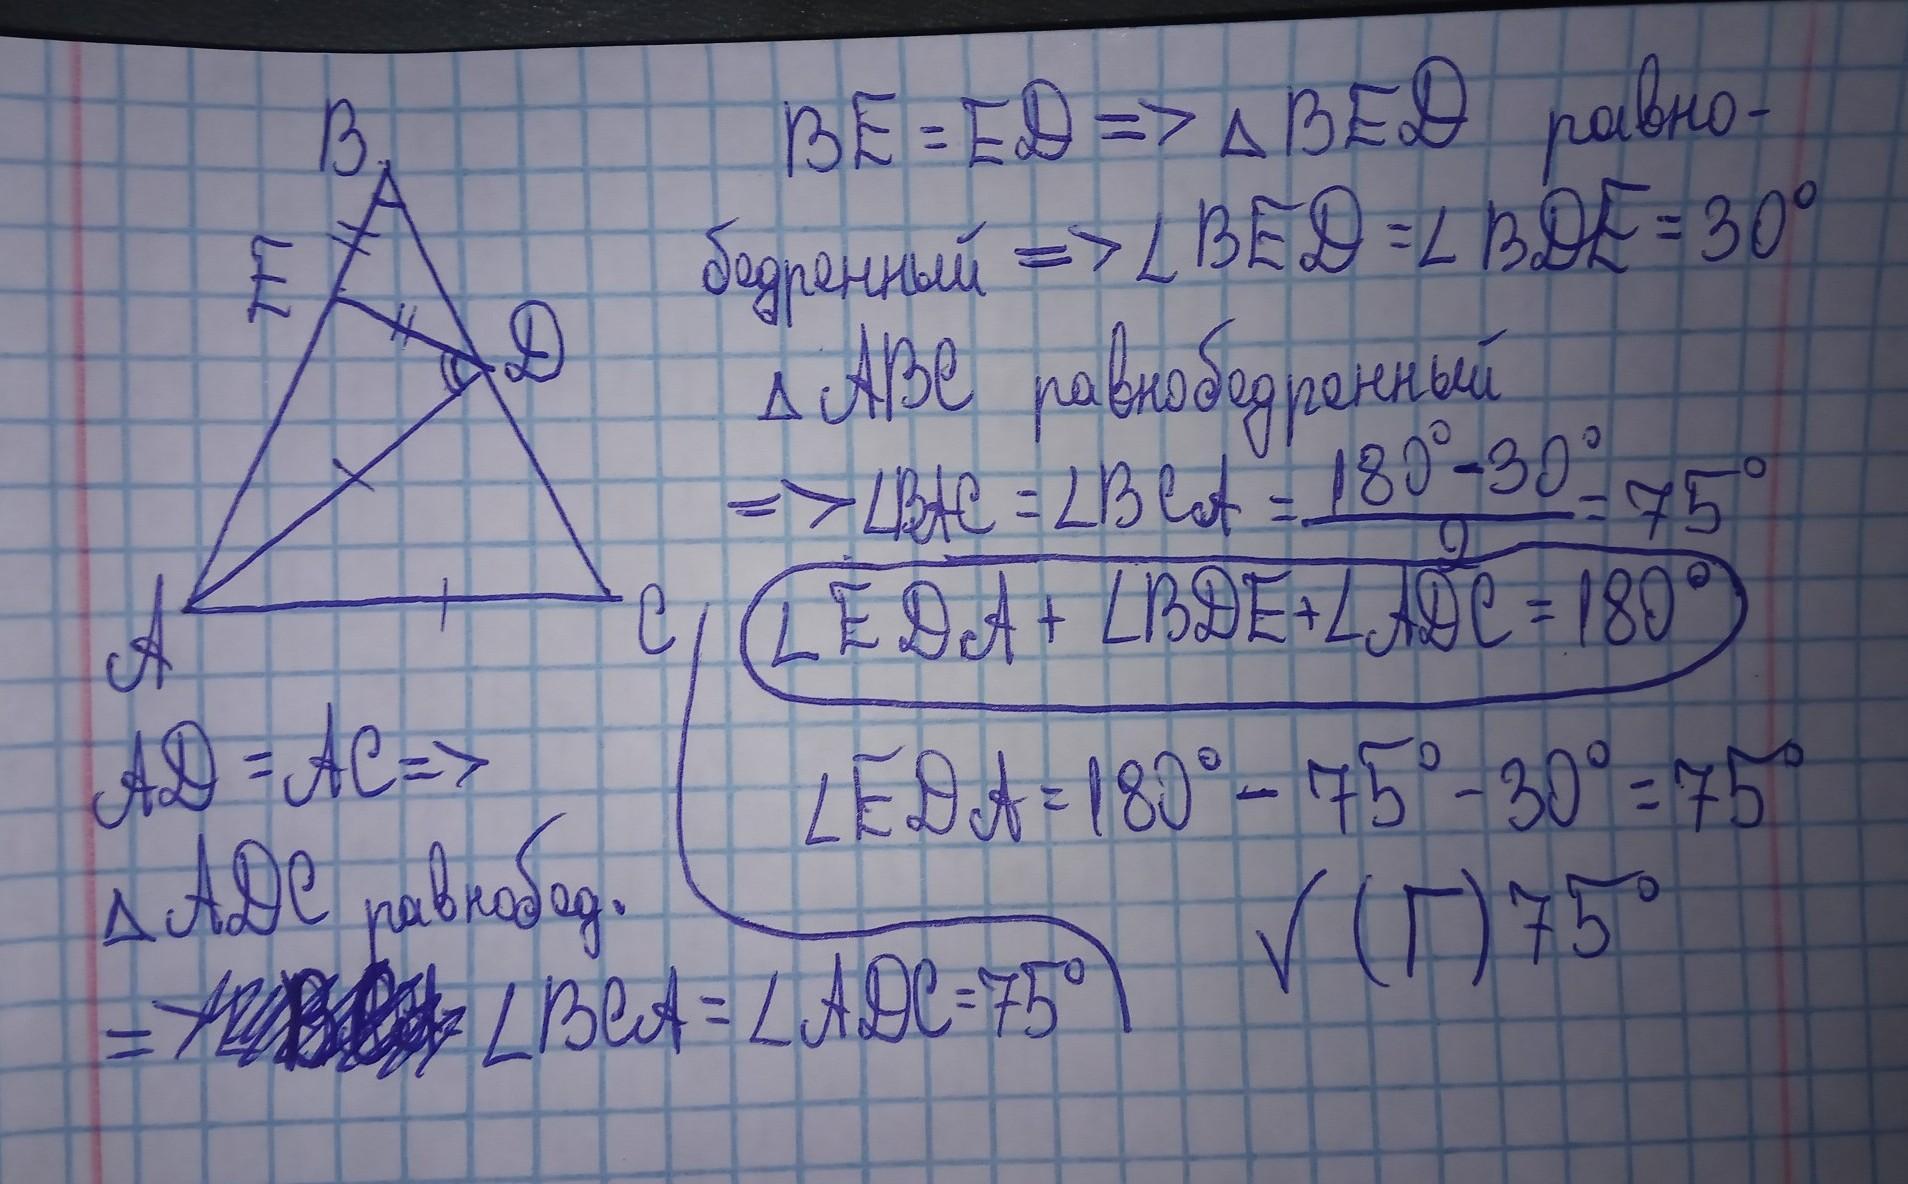 B
E
D
A
C
BE = ED => △ BED равно-
бедренный => ∠BED = ∠BDE = 30°
△ ABC равнобедренный
=> ∠BAC = ∠BCA = (180° - 30°)/2 = 75°
∠EDA + ∠BDE + ∠ADC = 180°
∠EDA = 180° - 75° - 30° = 75°
✓ (Г) 75°
AD = AC =>
△ ADC равнобед.
=> ∠BCA = ∠ADC = 75°